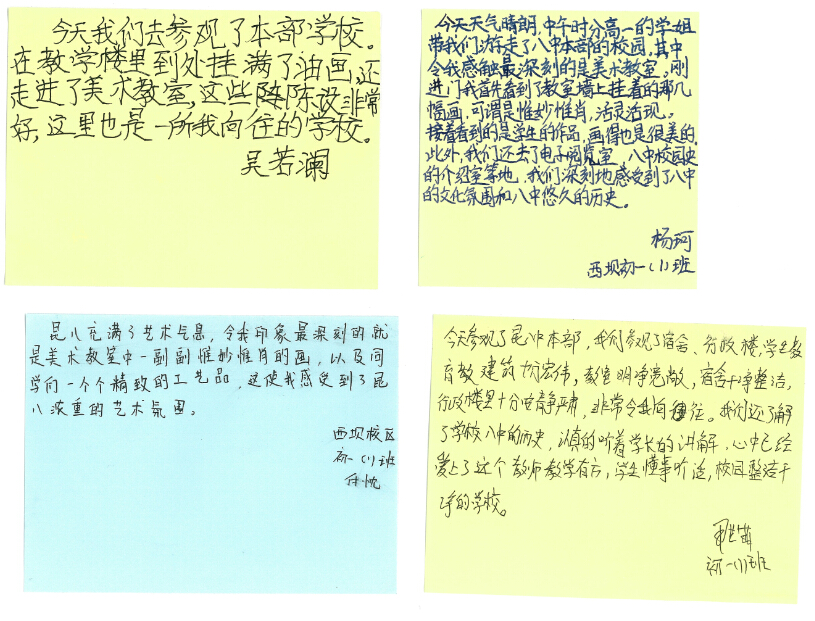 今天我们去参观了本部学校。
在教学楼里到处挂满了油画,还
走进了美术教室,这些陈设非常
好,这里也是一所我向往的学校。
吴若澜
今天天气晴朗,中午时分高一的学姐
带我们游走了八中本部的校园,其中
令我感触最深刻的是美术教室,刚
进门我首先看到了教室墙上挂着的那几
幅画,可谓是惟妙惟肖,活灵活现。
接着看到的是学生的作品,画得也是很美的,
此外,我们还去了电子阅览室,八中校园史
的介绍室等地,我们深刻地感受到了八中
的文化氛围和八中悠久的历史。
杨珂
西坝初一(1)班
昆八充满了艺术气息,令我印象最深刻的就
是美术教室中一副副惟妙惟肖的画,以及同
学们一个个精致的工艺品,这使我感受到了昆
八浓重的艺术氛围。
西坝校区
初一(1)班
今天参观了昆八中本部,我们参观了宿舍、行政楼,学生教
育教建筑十分宏伟,教室明净宽敞,宿舍干净整洁,
行政楼里十分安静严肃,非常令我向往。我们还了解
了学校八中的历史,认真的听着学长的讲解,心中已经
爱上了这个教师教学有方,学生懂事听话,校园整洁干
净的学校。
初一(1)班